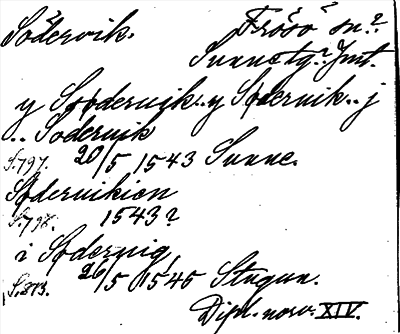 Södervik. Frösö sn.?
Sunne tg.? Jmt.
y Sødervik.. y Sødervik.. j
.. Sodervik
S. 797. 20/5 1543 Sunne.
Sødervikien
S. 798. 1543?
i Sødervig,
S. 813. 26/5 1545 Stugun.
Dipl. norv. XIV.